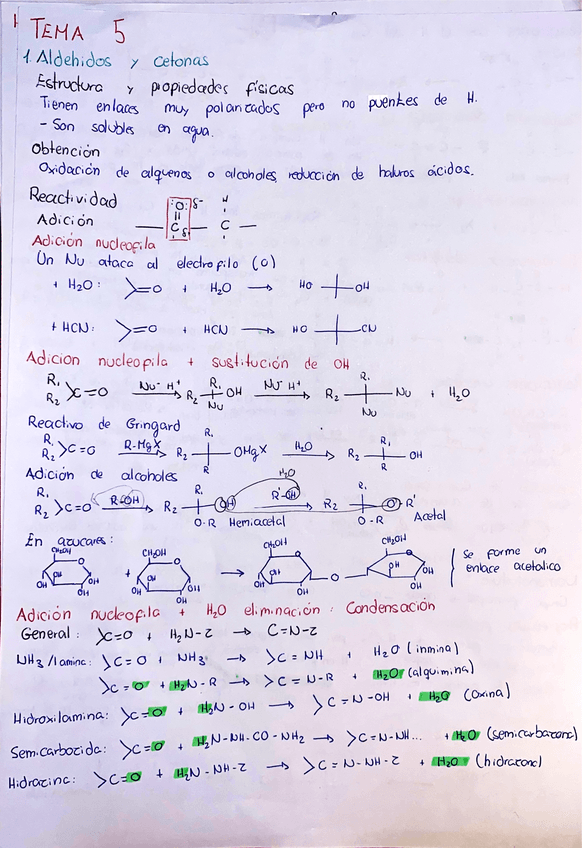 TEMA 5
1. Aldehidos y cetonas
Estructura y propiedades físicas
Tienen enlaces muy polarizados pero no puentes de H.
- Son solubles en agua.
Obtención
Oxidación de alquenos o alcoholes, reducción de haluros ácidos.
Reactividad
:O: δ- H
Adición — C δ+ — C —
Adición nucleofila
Un Nu ataca al electrofilo (C)
+ H2O: >=O + H2O → HO OH
+ HCN: >=O + HCN → HO CN
Adicion nucleofila + sustitución de OH
R1 R2 >C=O Nu- H+ → R2 R1 OH Nu Nu- H+ → R2 R1 Nu Nu + H2O
Reactivo de Gringard
R1 R2 >C=O R-MgX → R2 R1 OMgX R H2O → R2 R1 OH R
Adición de alcoholes
H2O
R1 R2 >C=O R-OH → R2 R1 OH O-R Hemiacetal R'-OH → R2 R1 O R' O-R Acetal
En azucares:
CH2OH OH OH OH + CH2OH OH OH OH → CH2OH OH OH OH O CH2OH OH OH OH
Se forme un
enlace acetolico
Adición nucleofila + H2O eliminación: Condensación
General: >C=O + H2N-Z → C=N-Z
NH3/1amina: >C=O + NH3 → >C=NH + H2O (inmina)
>C=O + H2N-R → >C=N-R + H2O (alquimina)
Hidroxilamina: >C=O + H2N-OH → >C=N-OH + H2O (oxina)
Semicarbacida: >C=O + H2N-NH-CO-NH2 → >C=N-NH... + H2O (semicarbazona)
Hidrazina: >C=O + H2N-NH-Z → >C=N-NH-Z + H2O (hidrazona)